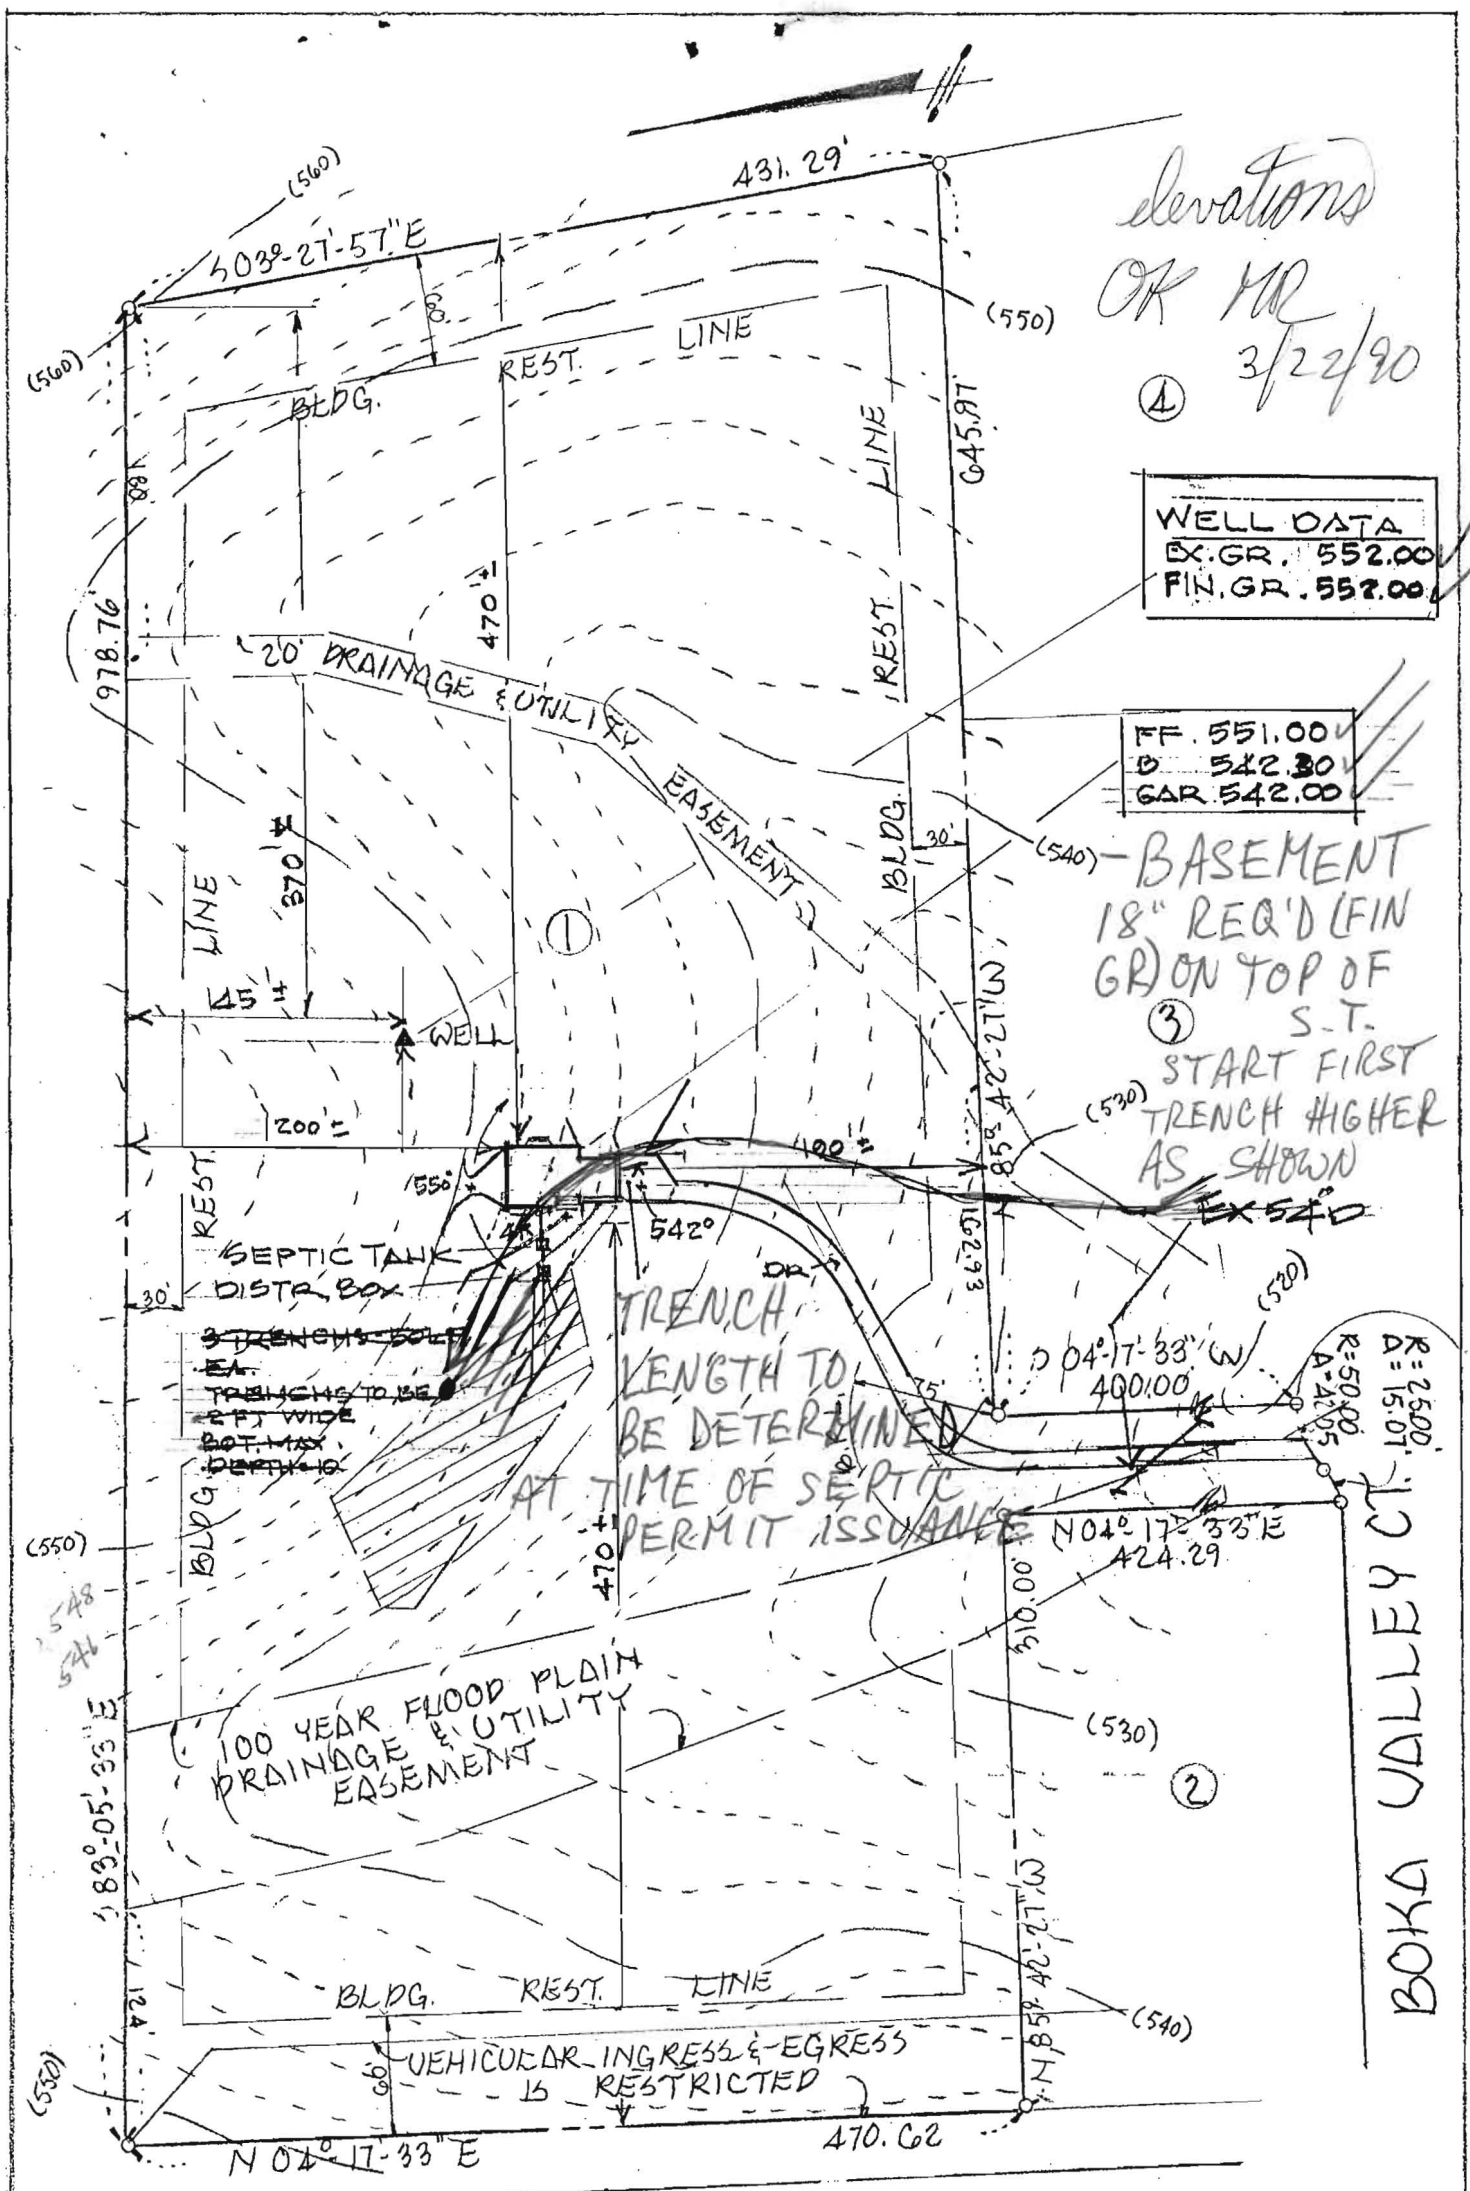 (560)
431.29'
S03°-27'-57"E
elevations
OK MR
3/22/90
④
(560)
60'
(550)
BLDG. REST. LINE
180
645.97
LINE
WELL DATA
EX.GR. 552.00
FIN.GR. 552.00
978.76'
470'±
20' DRAINAGE & UTILITY EASEMENT
REST.
FF. 551.00
B 542.30
GAR 542.00
370'±
BLDG.
30'
(540)
- BASEMENT
18" REQ'D (FIN
GR) ON TOP OF
③ S.T.
START FIRST
TRENCH HIGHER
AS SHOWN
LINE
①
145'±
WELL
(530)
200'±
190'±
N 85° 42'-27" W
REST.
550°
542°
EX 54°D
SEPTIC TANK
DISTR. BOX
30'
162.93
DR
(520)
3 TRENCHS-50LF
EA.
TRENCHS TO BE
2 FT WIDE
BOT. MAX.
DEPTH=10
TRENCH
LENGTH TO
BE DETERMINED
AT TIME OF SEPTIC
PERMIT ISSUANCE
75'
S 04°-17'-33" W
400.00
R=25.00'
Δ=15.07'
R=50.00
Δ=42.05
BLDG
470±
N 04°-17'-33"E
424.29
(550)
548
546
310.00'
100 YEAR FLOOD PLAIN
DRAINAGE & UTILITY
EASEMENT
(530)
②
BOKA VALLEY CT.
S 83°-05'-33"E
N 85° 42'-27" W
124'
BLDG. REST. LINE
(540)
60'
VEHICULAR INGRESS & EGRESS
IS RESTRICTED
(550)
N 04°-17'-33"E
470.62